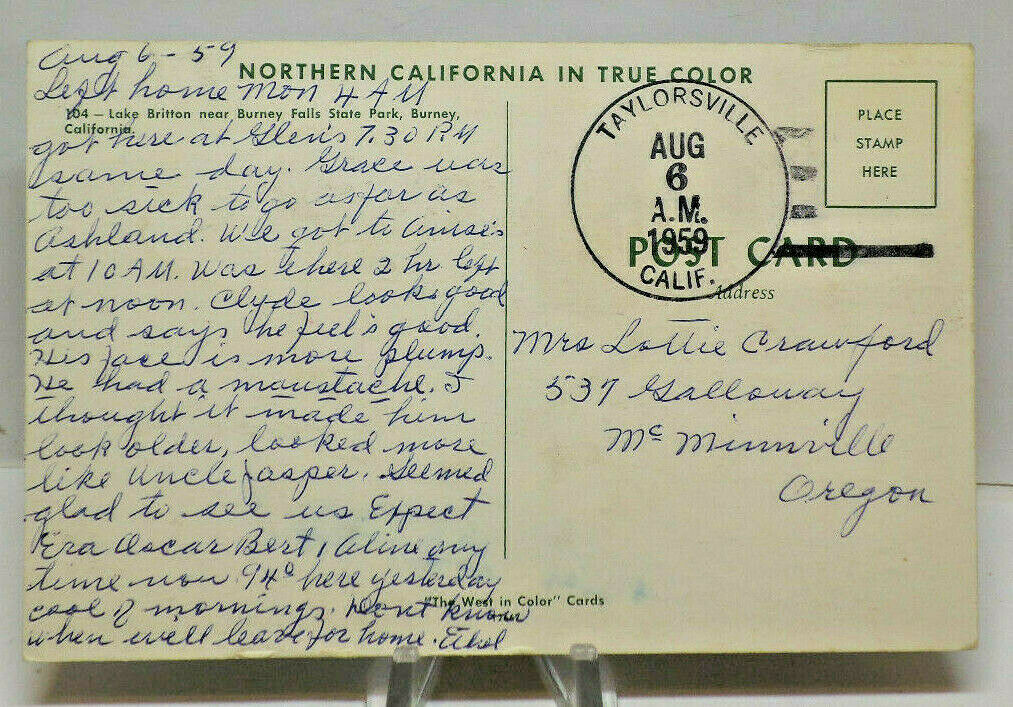 Aug 6 - 59
NORTHERN CALIFORNIA IN TRUE COLOR
Left home Mon 4 AM
104 — Lake Britton near Burney Falls State Park, Burney,
California.
got here at Glen's 7.30 P.M
same day. Grace was
too sick to go as far as
Ashland. We got to
at 10 AM. Was there 2 hr left
at noon. Clyde looks good
and says he feel's good.
His face is more plump.
He had a maustache. I
thought it made him
look older, looked more
like Uncle Jasper. Seemed
glad to see us Expect
Era Oscar Bert, Aline any
time now 94° here yesterday
cool of mornings. Dont know
when we'll leave for home. Ethel
TAYLORSVILLE
AUG
6
A.M.
1959
CALIF.
PLACE
STAMP
HERE
POST CARD
Address
Mrs Lottie Crawford
537 Galloway
Mc Minnville
Oregon
"The West in Color" Cards